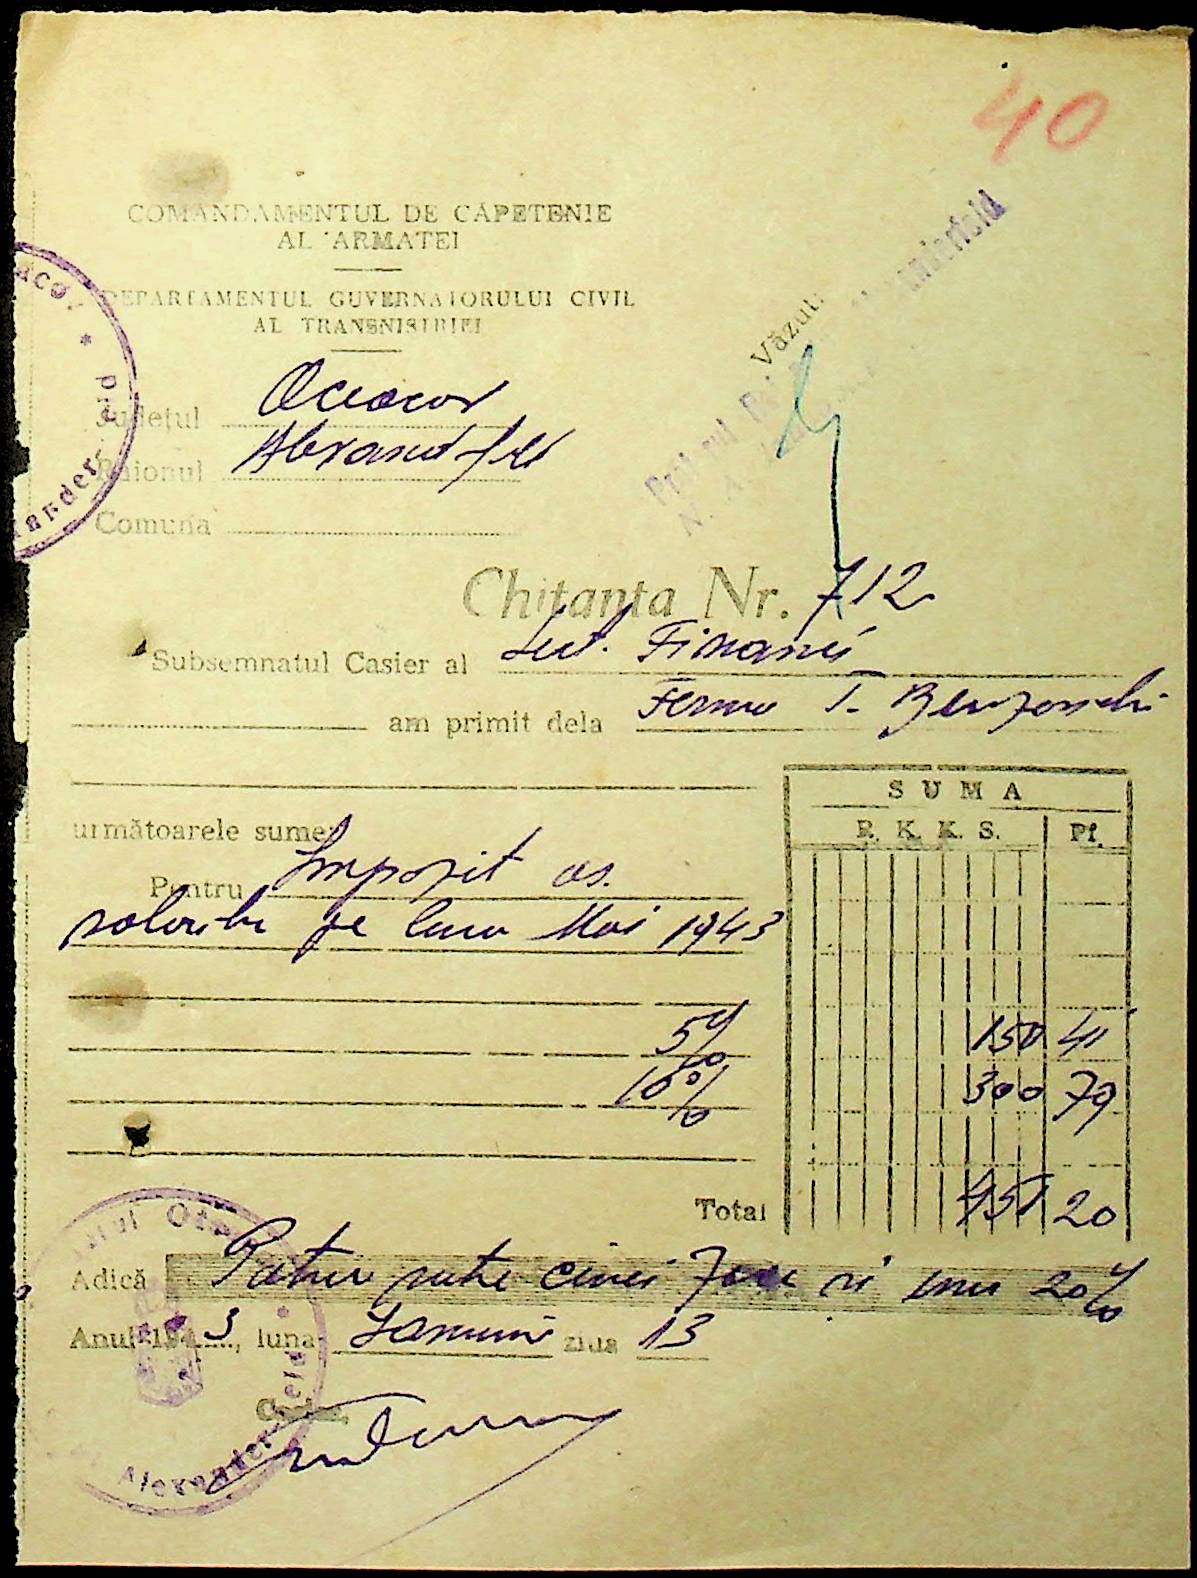 40
COMANDAMENTUL DE CĂPETENIE
AL ARMATEI
DEPARTAMENTUL GUVERNATORULUI CIVIL
AL TRANSNISTRIEI
Văzut:
Județul Oceacov
Raionul Alexandfeld
Comuna
Chitanta Nr. 712
Subsemnatul Casier al Financii
am primit dela Ferma
SUMA
R. K. K. S. Pf.
următoarele sume:
Pentru Impozit as.
pe luna Mai 1943
5% 150 41
10% 300 79
Total 451 20
Adică Patru sute cinci zeci si unu 20%
Anul 194 3, luna ziua 13
Casier,
Alexanderfeld